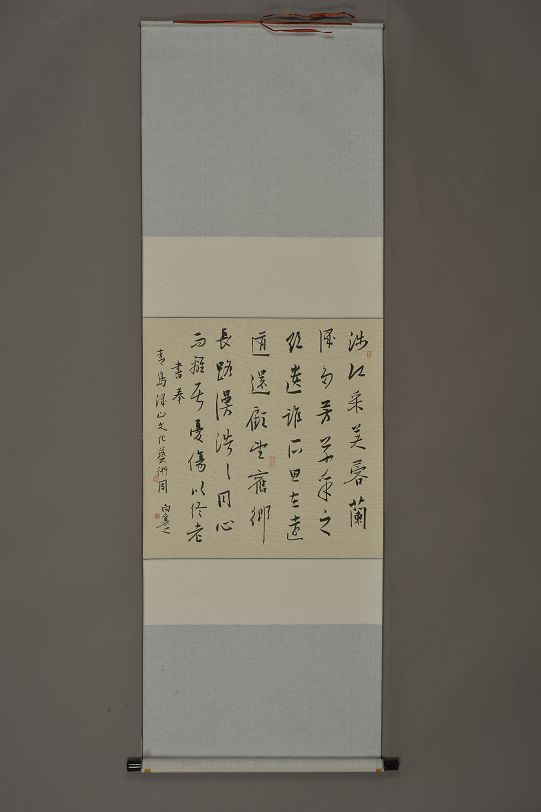 涉江采芙蓉蘭
澤多芳草采之
欲遺誰所思在遠
道還顧望舊鄉
長路漫浩〻同心
而離居憂傷以終老
書奉
青島山文化藝術